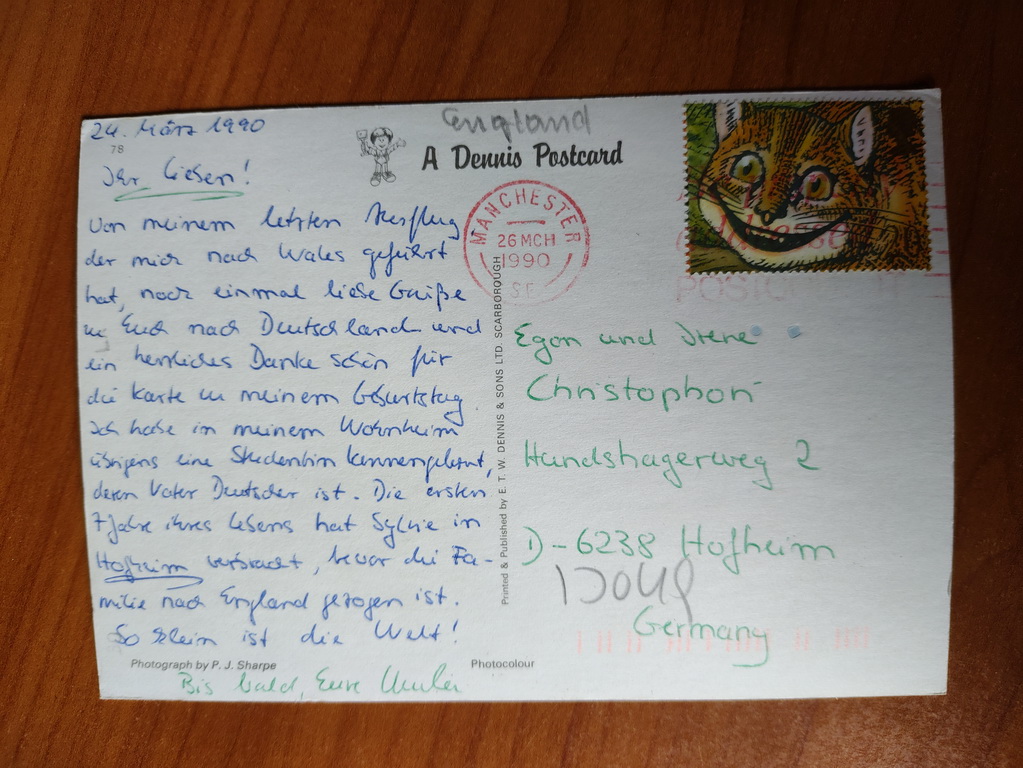 24. März 1990
78
Ihr Lieben!
Von meinem letzten Ausflug
der mich nach Wales geführt
hat, noch einmal liebe Grüße
zu Euch nach Deutschland und
ein herzliches Danke schön für
die Karte zu meinem Geburtstag.
Ich habe in meinem Wohnheim
übrigens eine Studentin kennengelernt,
deren Vater Deutscher ist. Die ersten
7 Jahre ihres Lebens hat Sylvie in
Hofheim verbracht, bevor die Fa-
milie nach England gezogen ist.
So klein ist die Welt!
Photograph by P. J. Sharpe
Photocolour
Bis bald, Eure
England
A Dennis Postcard
MANCHESTER
26 MCH
1990
Printed & Published by E. T. W. DENNIS & SONS LTD. SCARBOROUGH
Egon und Irene
Christophori
Hundshagerweg 2
D-6238 Hofheim
Germany